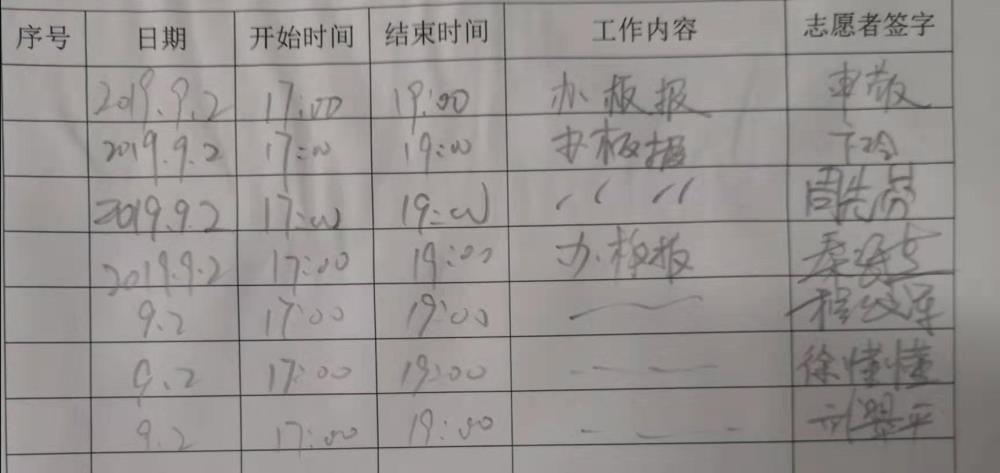 序号 日期 开始时间 结束时间 工作内容 志愿者签字
2019.9.2 17:00 19:00 办板报
2019.9.2 17:00 19:00 办板报
2019.9.2 17:00 19:00 〃 〃
2019.9.2 17:00 19:00 办板板
9.2 17:00 19:00
9.2 17:00 19:00 徐慬慬
9.2 17:00 19:00